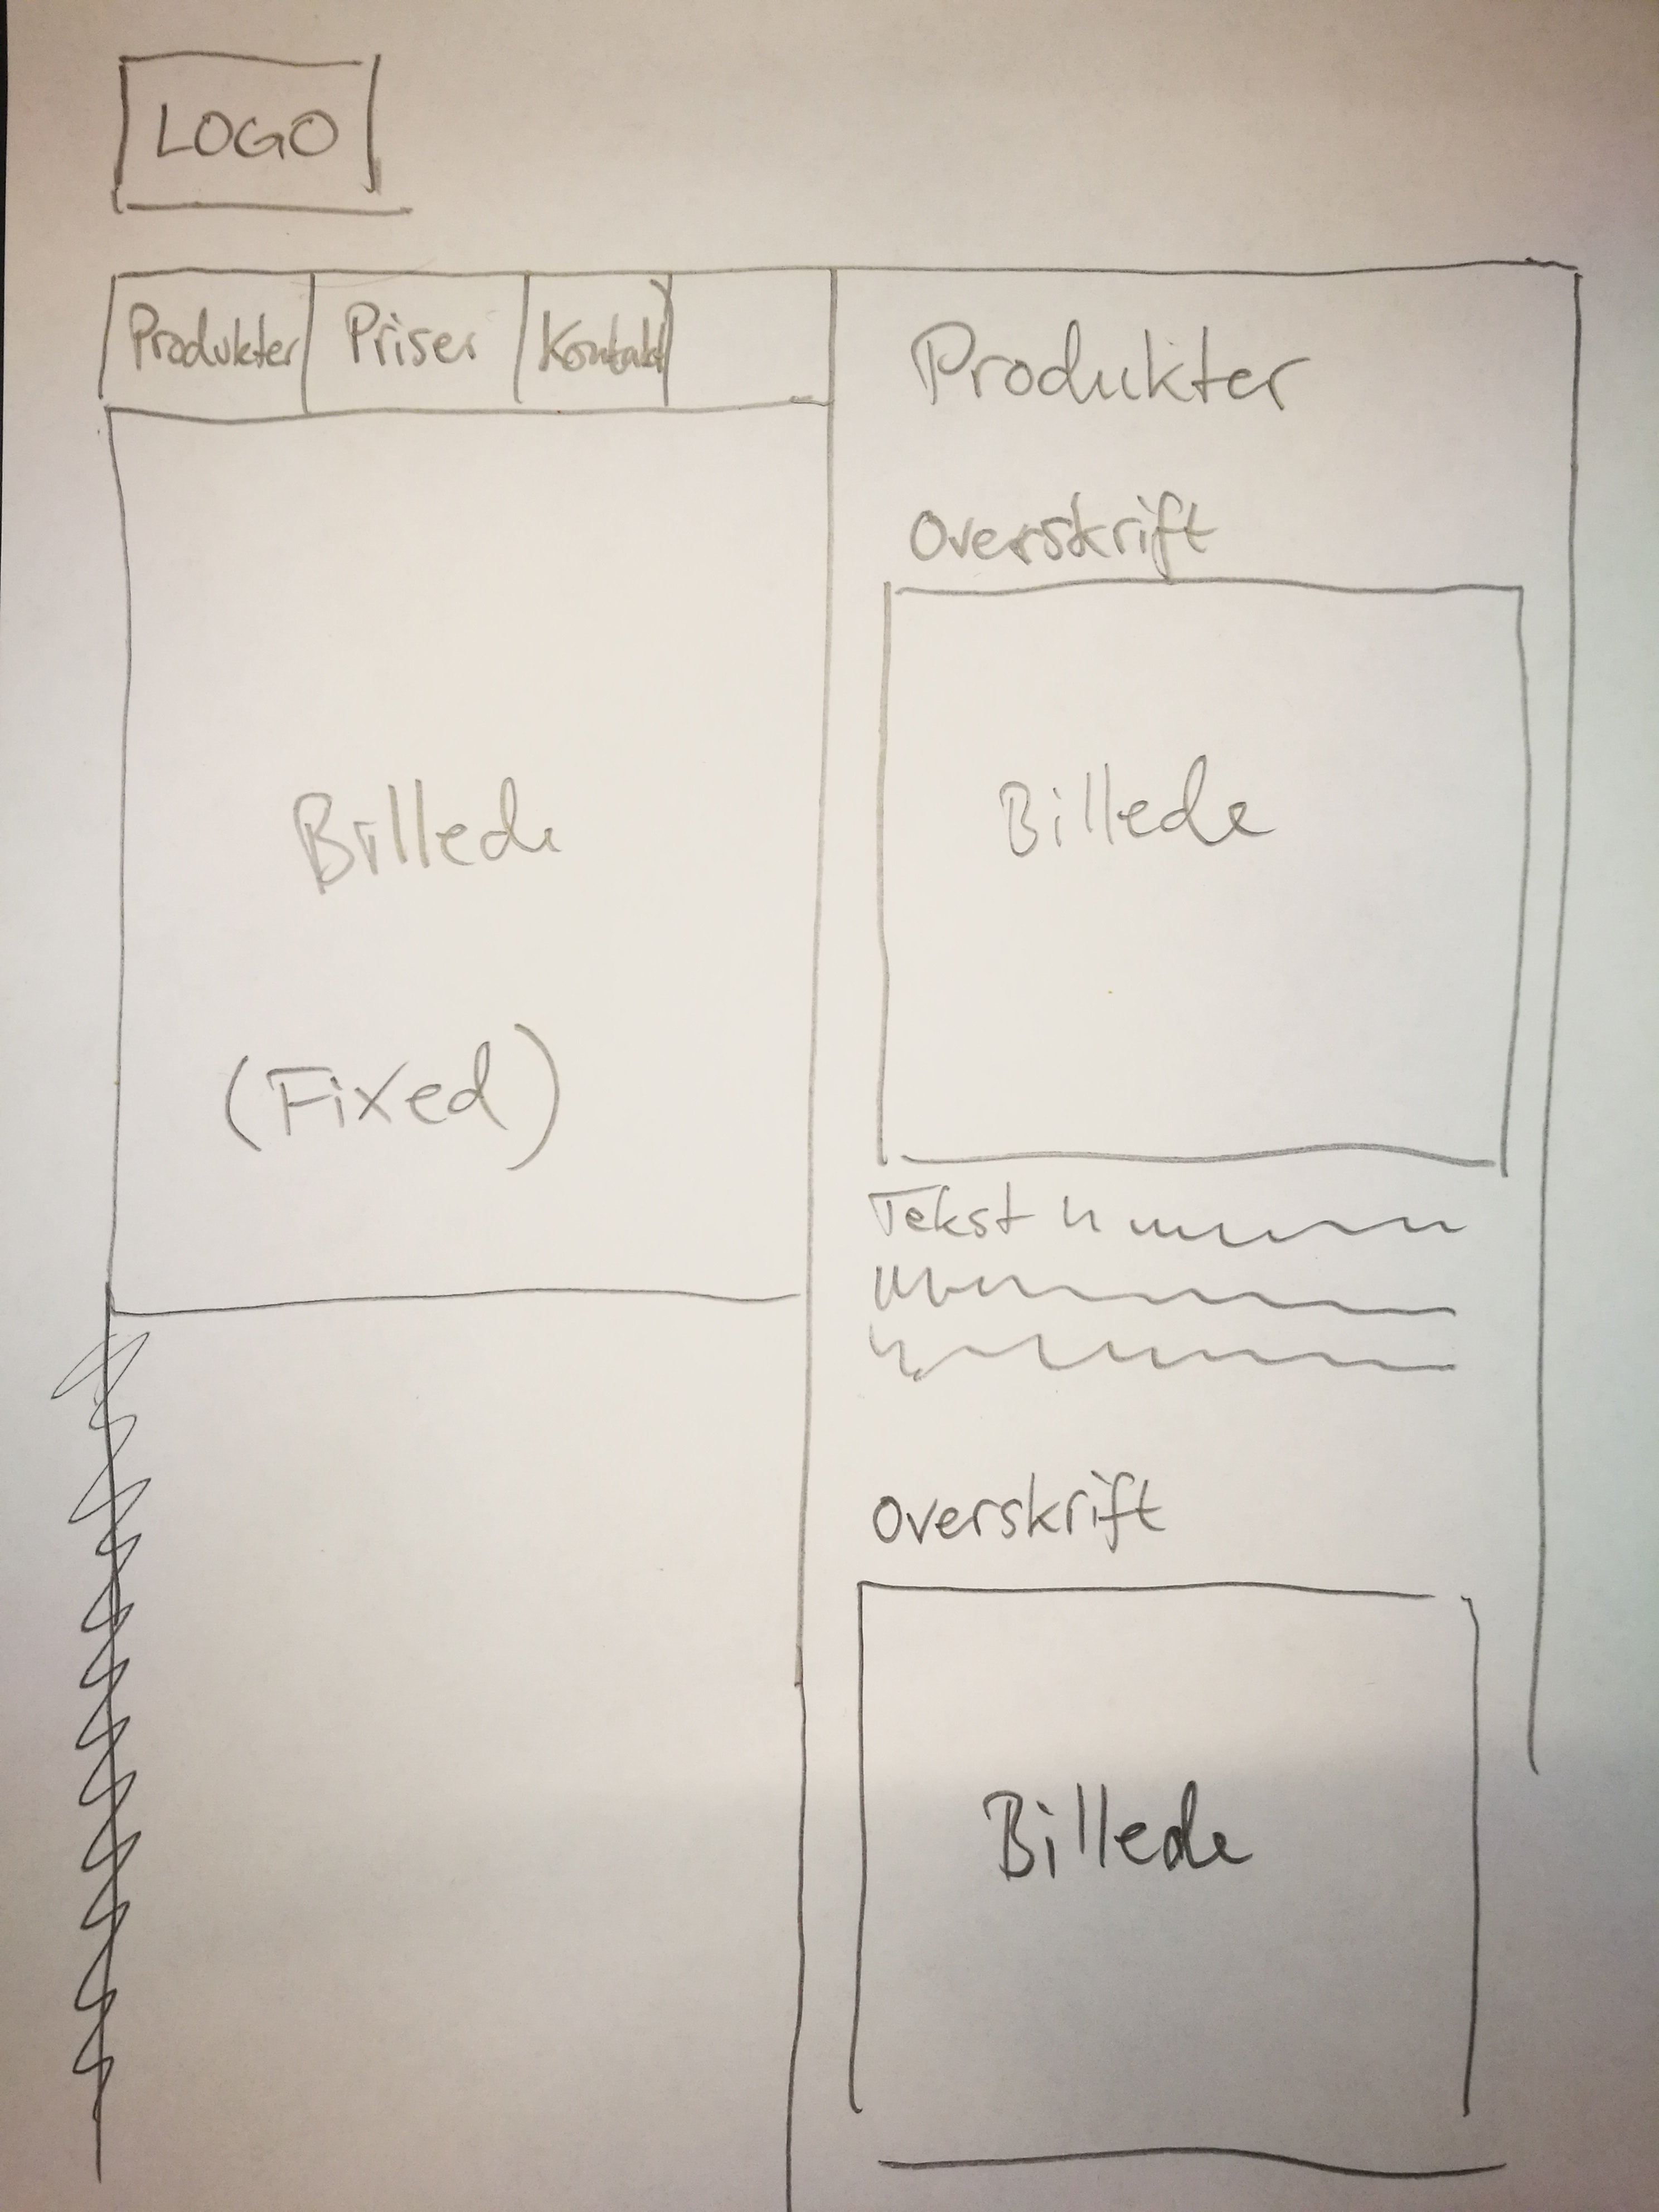 LOGO
Produkter Priser Kontakt
Billede
(Fixed)
Produkter
Overskrift
Billede
Tekst
Overskrift
Billede